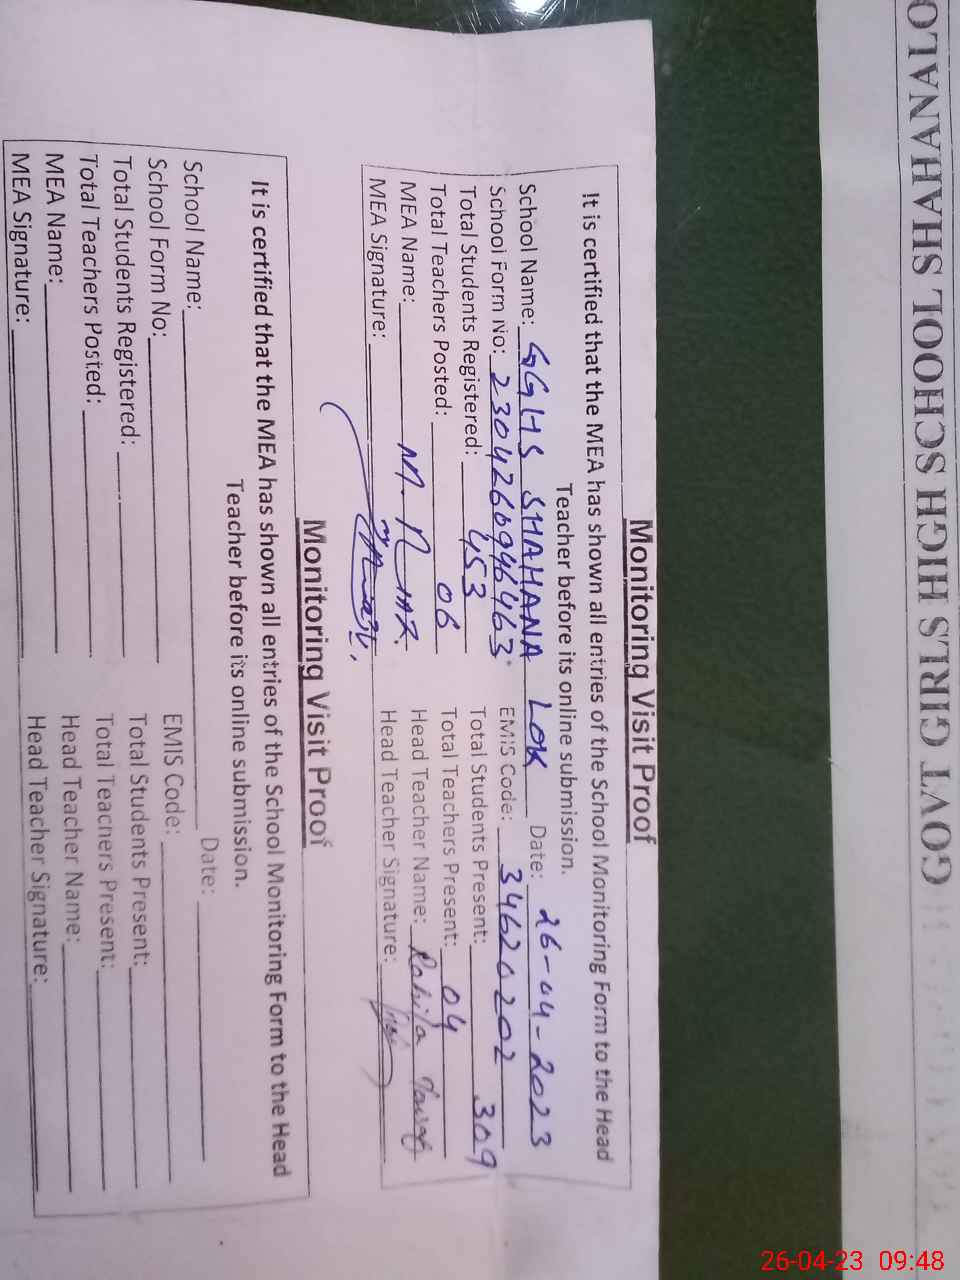 GOVT GIRLS HIGH SCHOOL SHAHANALO
Monitoring Visit Proof
It is certified that the MEA has shown all entries of the School Monitoring Form to the Head
Teacher before its online submission.
School Name: GGHS SHAHANA LOK Date: 26-04-2023
School Form No: 2304260946463 EMIS Code: 34620202
Total Students Registered: 453 Total Students Present: 309
Total Teachers Posted: 06 Total Teachers Present: 04
MEA Name: Head Teacher Name: Rahila
MEA Signature: Head Teacher Signature:
Monitoring Visit Proof
It is certified that the MEA has shown all entries of the School Monitoring Form to the Head
Teacher before its online submission.
School Name: Date:
School Form No: EMIS Code:
Total Students Registered: Total Students Present:
Total Teachers Posted: Total Teachers Present:
MEA Name: Head Teacher Name:
MEA Signature: Head Teacher Signature:
26-04-23 09:48